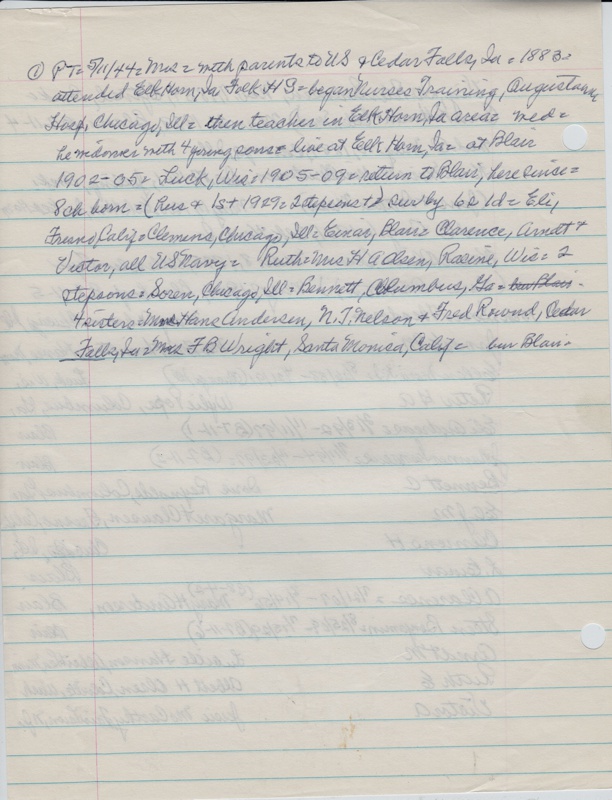 ① PT = 5/11/44 = Mrs = with parents to US & Cedar Falls, Ia = 1883 =
attended Elk Horn, Ia Folk HS = began Nurses Training, Augustana
Hosp, Chicago, Ill = then teacher in Elk Horn, Ia area = med =
he widower with 4 young sons = live at Elk Horn, Ia = at Blair
1902-05 = Luck, Wis = 1905-09 = return to Blair, here since =
8 ch born = (Rus & 1st 1929 = 2 stepsons +) surv by 6 s 1d = Eli,
Fresno, Calif = Clemens, Chicago, Ill = Einar, Blair = Clarence, Arndt &
Victor, all US Navy = Ruth = Mrs H A Olsen, Racine, Wis = 2
stepsons = Soren, Chicago, Ill = Bennett, Columbus, Ga = bur Blair -
4 sisters = Mmes Hans Andersen, N.T. Nelson & Fred Round, Cedar
Falls, Ia = Mrs F B Wright, Santa Monica, Calif = bur Blair =